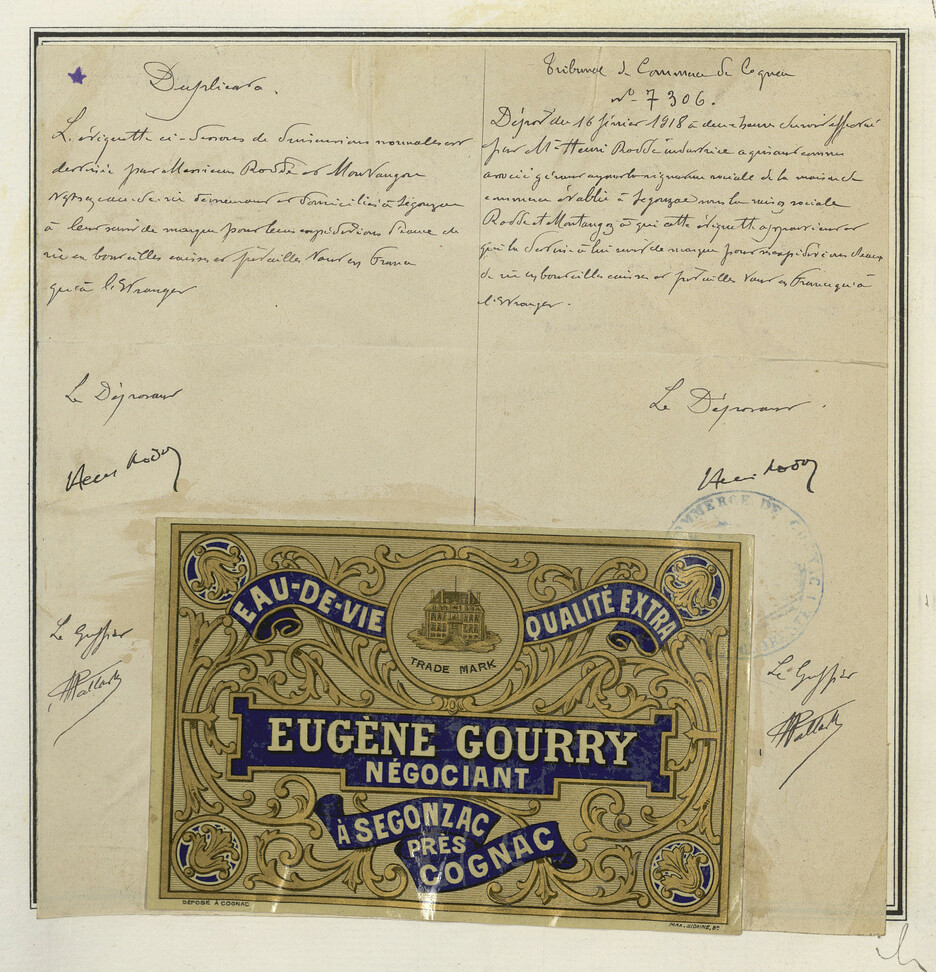 Duplicata.
L'étiquette ci-dessous de dimensions normales est
destinée par Messieurs Rodde et Montangon
Nég^ts eau-de-vie demeurant et domiciliés à Segonzac
à leur servir de marque pour leurs expéditions d'eaux de
vie en bouteilles caisses et futailles tant en France
qu'à l'Etranger
Le Déposant
Henri Rodde
Le Greffier
Tribunal de Commerce de Cognac
N° 7306.
Dépôt du 16 février 1918 à deux heures du soir effectué
par M^r Henri Rodde industriel agissant comme
associé gérant ayant la signature sociale de la maison de
commerce établie à Segonzac sous la raison sociale
Rodde et Montangon à qui cette étiquette appartient et
qui la destine à lui servir de marque pour ses expéditions d'eaux
de vie en bouteilles caisses et futailles tant en France qu'à
l'Etranger.
Le Déposant.
Henri Rodde
COMMERCE DE
Le Greffier
EAU-DE-VIE
QUALITÉ EXTRA
TRADE MARK
EUGÈNE GOURRY
NÉGOCIANT
À SEGONZAC
PRÈS
COGNAC
DÉPOSÉ À COGNAC